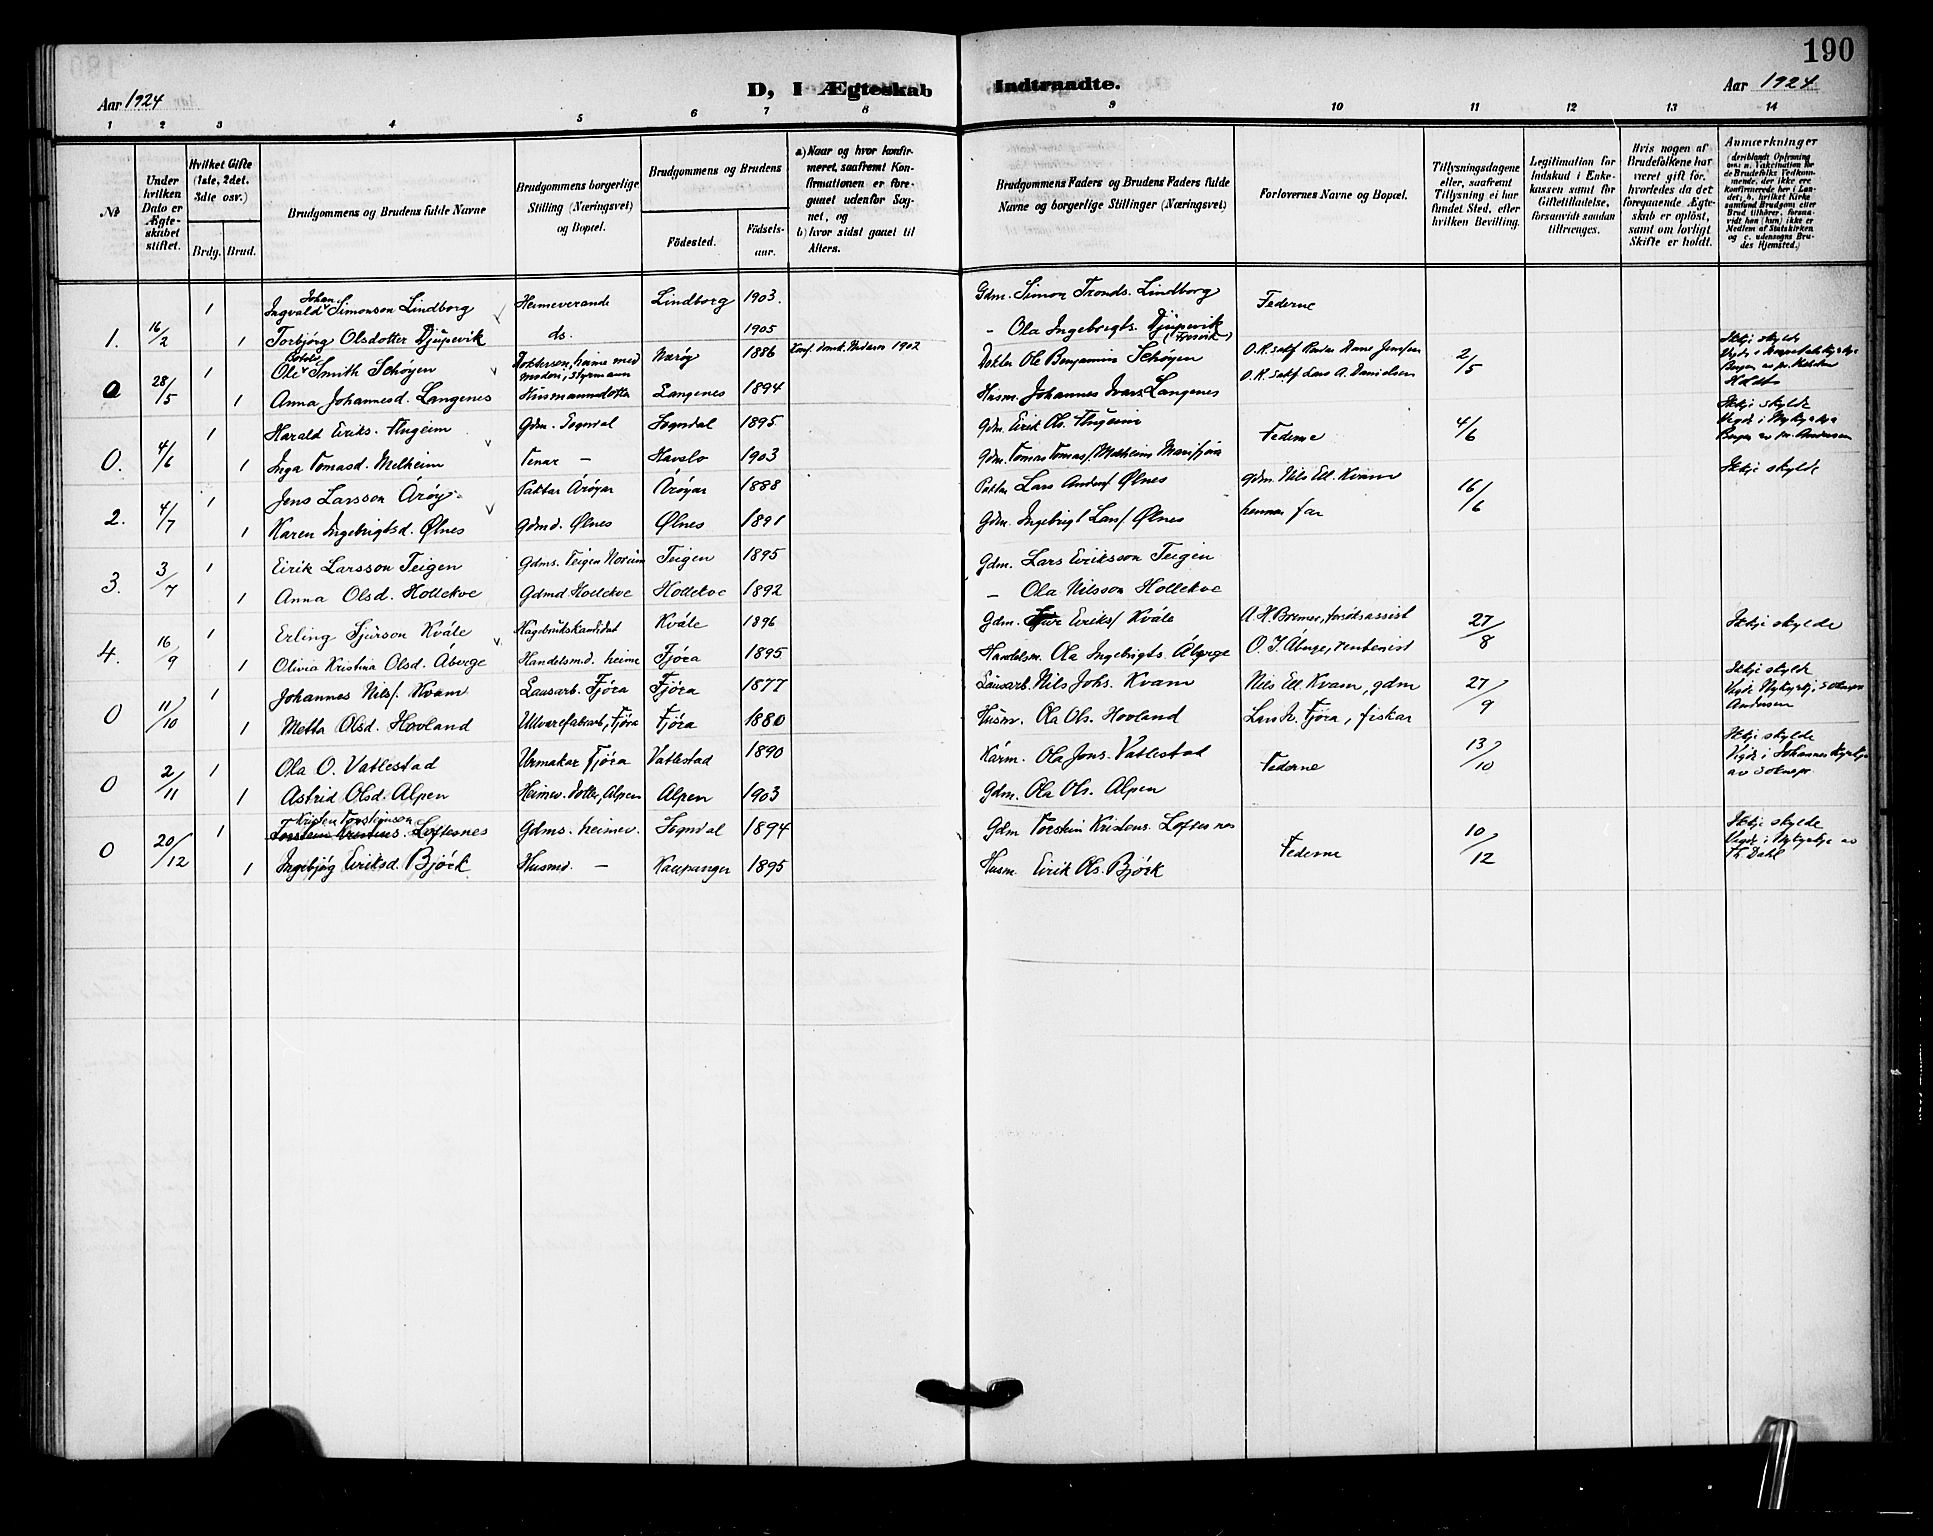 190
Aar 1924
D, I Ægteskab Indtraadte.
Aar 1924
1 2 3 4 5 6 7 8 9 10 11 12 13 14
No
Under hvilken Dato er Ægteskabet stiftet.
Hvilket Gifte (1ste, 2det, 3die osv.)
Brdg. Brud.
Brudgommens og Brudens fulde Navne
Brudgommens borgerlige Stilling (Næringsvei) og Bopæl.
Brudgommens og Brudens
Födested. Födselsaar.
a) Naar og hvor konfirmeret, saafremt Konfirmationen er foregaaet udenfor Sognet, og
b) hvor sidst gaaet til Alters.
Brudgommens Faders og Brudens Faders fulde Navne og borgerlige Stillinger (Næringsvei)
Forlovernes Navne og Bopæl.
Tillysningsdagene eller, saafremt Tillysning ei har fundet Sted, efter hvilken Bevilling.
Legitimation for Indskud i Enkekassen samt for Giftetilladelse, forsaavidt saadan tiltrænges.
Hvis nogen af Brudefolkene har været gift før, hvorledes da det foregaaende Ægteskab er opløst, samt om lovligt Skifte er holdt.
Anmærkninger
(deriblandt Oplysning om: a. Vakcination for de Brudefolks Vedkommende, der ikke ere konfirmerede her i Landet; b. hvilket Kirkesamfund Brudgom eller Brud tilhører, forsaavidt han (hun) ikke er Medlem af Statskirken og c. udensogns Brudes Hjemsted.)
Johan
Ingvald Simonson Lindborg Heimeverande Lindborg 1903. Gdm. Simon Tronds. Lindborg Federne
1. 16/2 1 1 Torbjörg Olsdotter Djupevik ds. 1905 - Ola Ingebrigts. Djupevik
Ole Smith Schøyen Doktersson, heime med moderi, styrmann Nærøy 1886 1902 Dokter Ole Benjamin Schøyen 2/5 Ikkje skylde
0 28/5 1 1 Anna Johannesd. Langenes Husmannsdotter Langenes 1894 Husm. Johannes Ivars. Langenes
Harald Eiriks. Gdm. Sogndal Sogndal 1895 Gdm. Eirik Ols. Federne 4/6 Ikkje skylde
0. 4/6 1 1 Inga Tomasd. Melheim - Havslo 1903 Gdm. Tomas Tomas/ Melheim Marifjöra
Jens Larsson Åröy Paktar Åröyar Åröyar 1888 Paktar Lars Anders/ Ølnes gdm. Nils Ell. Kvam 16/6 Ikkje skylde
2. 4/7 1 1 Karen Ingebrigtsd. Ølnes Gdmd. Ølnes Ølnes 1891 Gdm. Ingebrigt Lars/ Ølnes hennar far
Eirik Larsson Teigen Gdms. Teigen Norum Teigen 1895 Gdm. Lars Eiriksson Teigen
3. 3/7 1 1 Anna Olsd. Hollekve Gdmd Hollekve Hollekve 1892 - Ola Nilsson Hollekve
Erling Sjurson Kvåle Hagebrukskandidat Kvåle 1896 Gdm. Eiriks/ Kvåle A. H. Bremer, forsöksassist 27/8 Ikkje skylde
4. 16/9 1 1 Olivia Kristina Olsd. Åberge Handelsm.d. heime Fjöra 1895 Handelsm. Ola Ingebrigts. Åberge O. I. Åberge, rentenist
Johannes Nils/. Kvam Lausarb. Fjöra Fjöra 1877 Lausarb. Nils Johs. Kvam Nils Ell. Kvam, gdm 27/9 Ikkje skylde
0 11/10 1 1 Metta Olsd. Hovland Ullvarefabrarb., Fjöra Fjöra 1880 Husm. Ola Ols. Hovland Lars Fjöra, fiskar Andersen
Ola O. Vatlestad Urmakar Fjöra Vatlestad 1890 Kårm. Ola Jons. Vatlestad Federne 13/10 Ikkje skylde
0 2/11 1 1 Astrid Olsd. Alpen Heimev. dotter, Alpen Alpen 1903 Gdm. Ola Ols. Alpen
Kristen Torsteinson
Torstein Kristens. Loftesnes Gdms. heimev. Sogndal 1894 Gdm Torstein Kristens. Loftesnes Federne 10/12 Ikkje skylde
0 20/12 1 1 Ingebjög Eiriksd. Björk Husmd. - Kaupanger 1895 Husm. Eirik Ols. Björk Th. Dahl